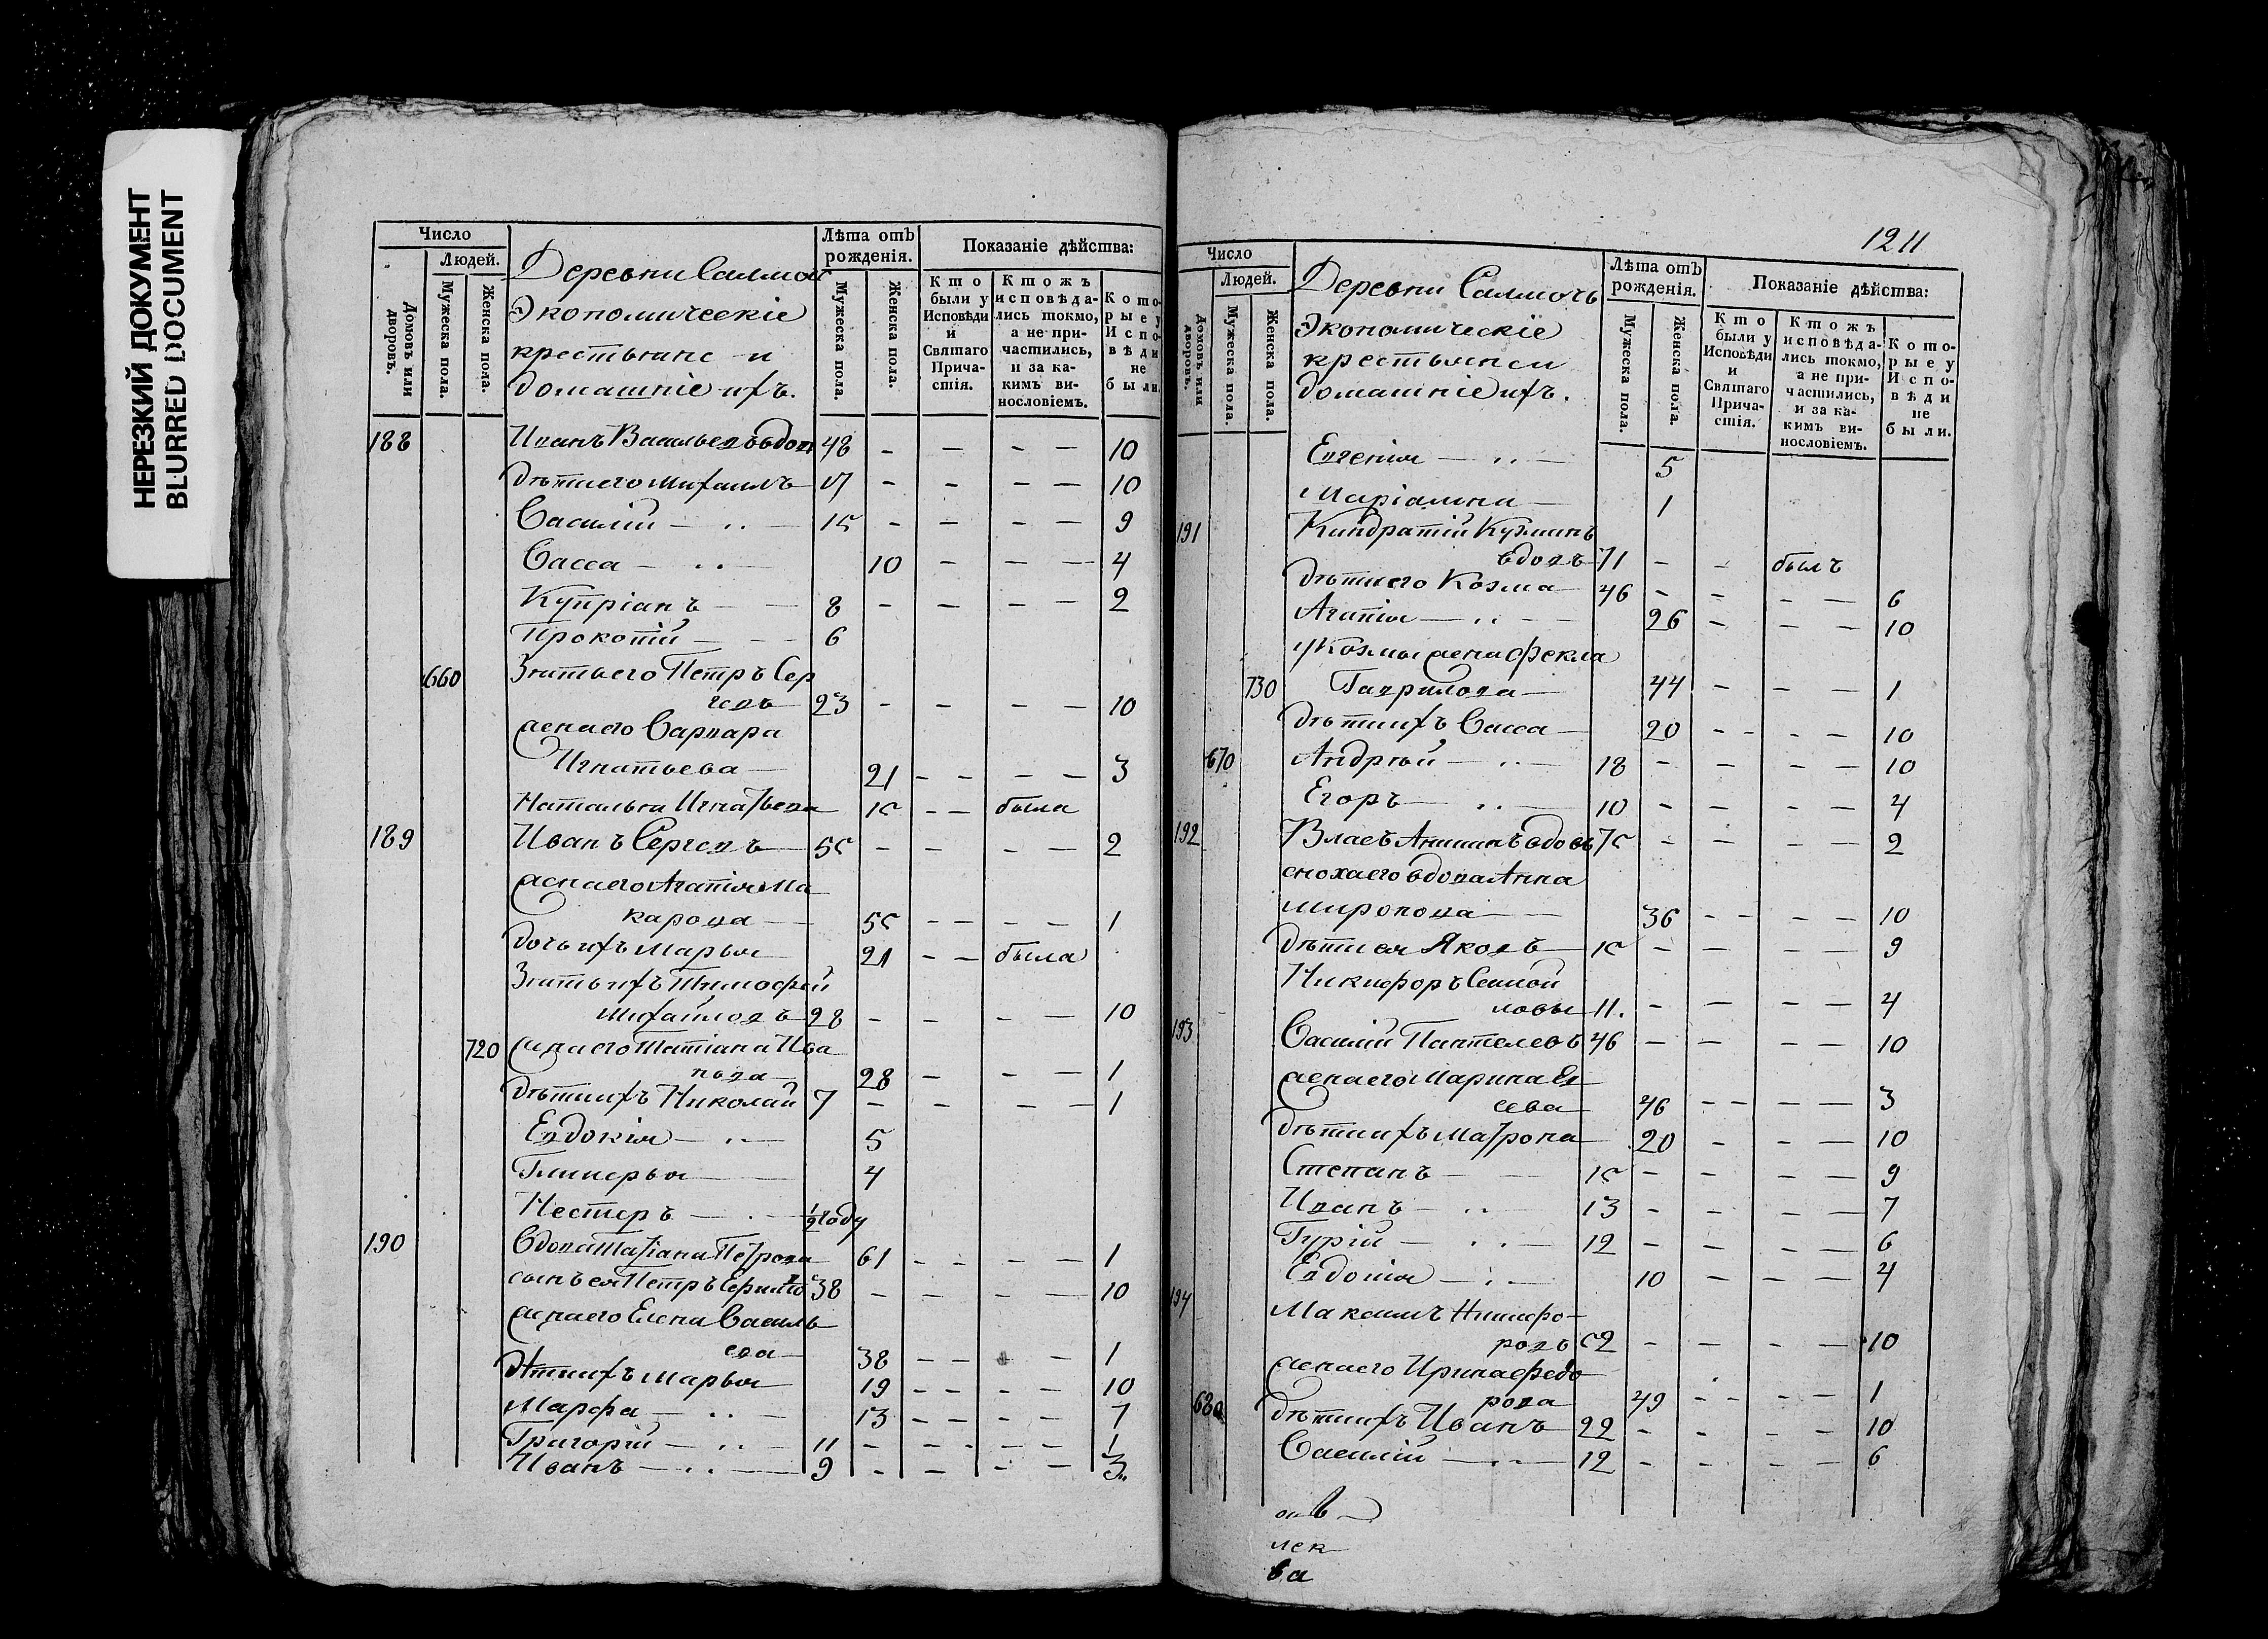 НЕРЕЗКИЙ ДОКУМЕНТ
BLURRED DOCUMENT
Число
Людей.
Домовъ или дворовъ.
Мужеска пола.
Женска пола.
Деревни
Экономическіе
крестьяне и
домашніе ихъ.
Лѣта отъ рожденія.
Мужеска пола.
Женска пола.
Показаніе дѣйства:
Кто были у Исповѣди и Святаго Причастія.
Ктожъ исповѣдались токмо, а не причастились, и за какимъ винословіемъ.
Которые у Исповѣди не были.
188 Иванъ Васильевъ вдов 48 - - - - 10
дѣти его Михаилъ 17 - - - - 10
Василій 15 - - - - 9
Васса 10 - - - 4
Купріанъ 8 - - - - 2
Прокопій 6
660 Зять его Петръ Сер
геевъ 23 - - - - 10
жена его Варвара
Игнатьева 21 - - - - 3
Наталья Игнатьева 15 - - была
189 Иванъ Сергеевъ 55 - - - - 2
жена его Агапія Ма
карова 55 - - - - 1
дочь ихъ Марья 21 - - была
Зять ихъ Тимофей
Михайловъ 28 - - - - 10
720 жена его Татіана Ива
нова 28 - - - 1
дѣти ихъ Николай 7 - - - - 1
Евдокія 5
Гликерья 4
Нестеръ 1/2 году
190 Вдова Татіана Петрова 61 - - - - 1
сынъ ея Петръ 38 - - - - 10
жена его Елена Василь
ева 38 - - - - 1
дѣти ихъ Марья 19 - - - - 10
Марфа 13 - - - - 7
Григорій 11 - - - - 1
Иванъ 9 - - - - 3
1211
Число
Людей.
Домовъ или дворовъ.
Мужеска пола.
Женска пола.
Деревни
Экономическіе
крестьяне и
домашніе ихъ.
Лѣта отъ рожденія.
Мужеска пола.
Женска пола.
Показаніе дѣйства:
Кто были у Исповѣди и Святаго Причастія.
Ктожъ исповѣдались токмо, а не причастились, и за какимъ винословіемъ.
Которые у Исповѣди не были.
Евгенія 5
Маріамна 1
191 Киндратій Кузминъ
вдовъ 71 - - былъ
дѣти его Козма 46 - - - - 6
Агапія 26 - - - 10
у Козмы жена Фекла
730 Гаврилова 44 - - - 1
дѣти ихъ Васса 20 - - - - 10
670 Андрей 18 - - - - 10
Егоръ 10 - - - - 4
192 Власъ Ананинъ вдовъ 75 - - - - 2
сноха его вдова Анна
Миронова 36 - - - - 10
дѣти ея Яковъ 15 - - - - 9
Никифоръ Самой
ловы 11. - - - - 4
193 Василій Пантелевъ 46 - - - - 10
жена его Марина Ев
сева 46 - - - - 3
дѣти ихъ Матрона 20 - - - 10
Степанъ 15 - - - - 9
Иванъ 13 - - - - 7
Гурій 12 - - - - 6
Евдокія 10 - - - 4
194 Максимъ Никифо-
ровъ 52 - - - - 10
жена его Ирина Федо
рова 49 - - - - 1
680 дѣти ихъ Иванъ 22 - - - - 10
Василій 12 - - - - 6
лек
ва